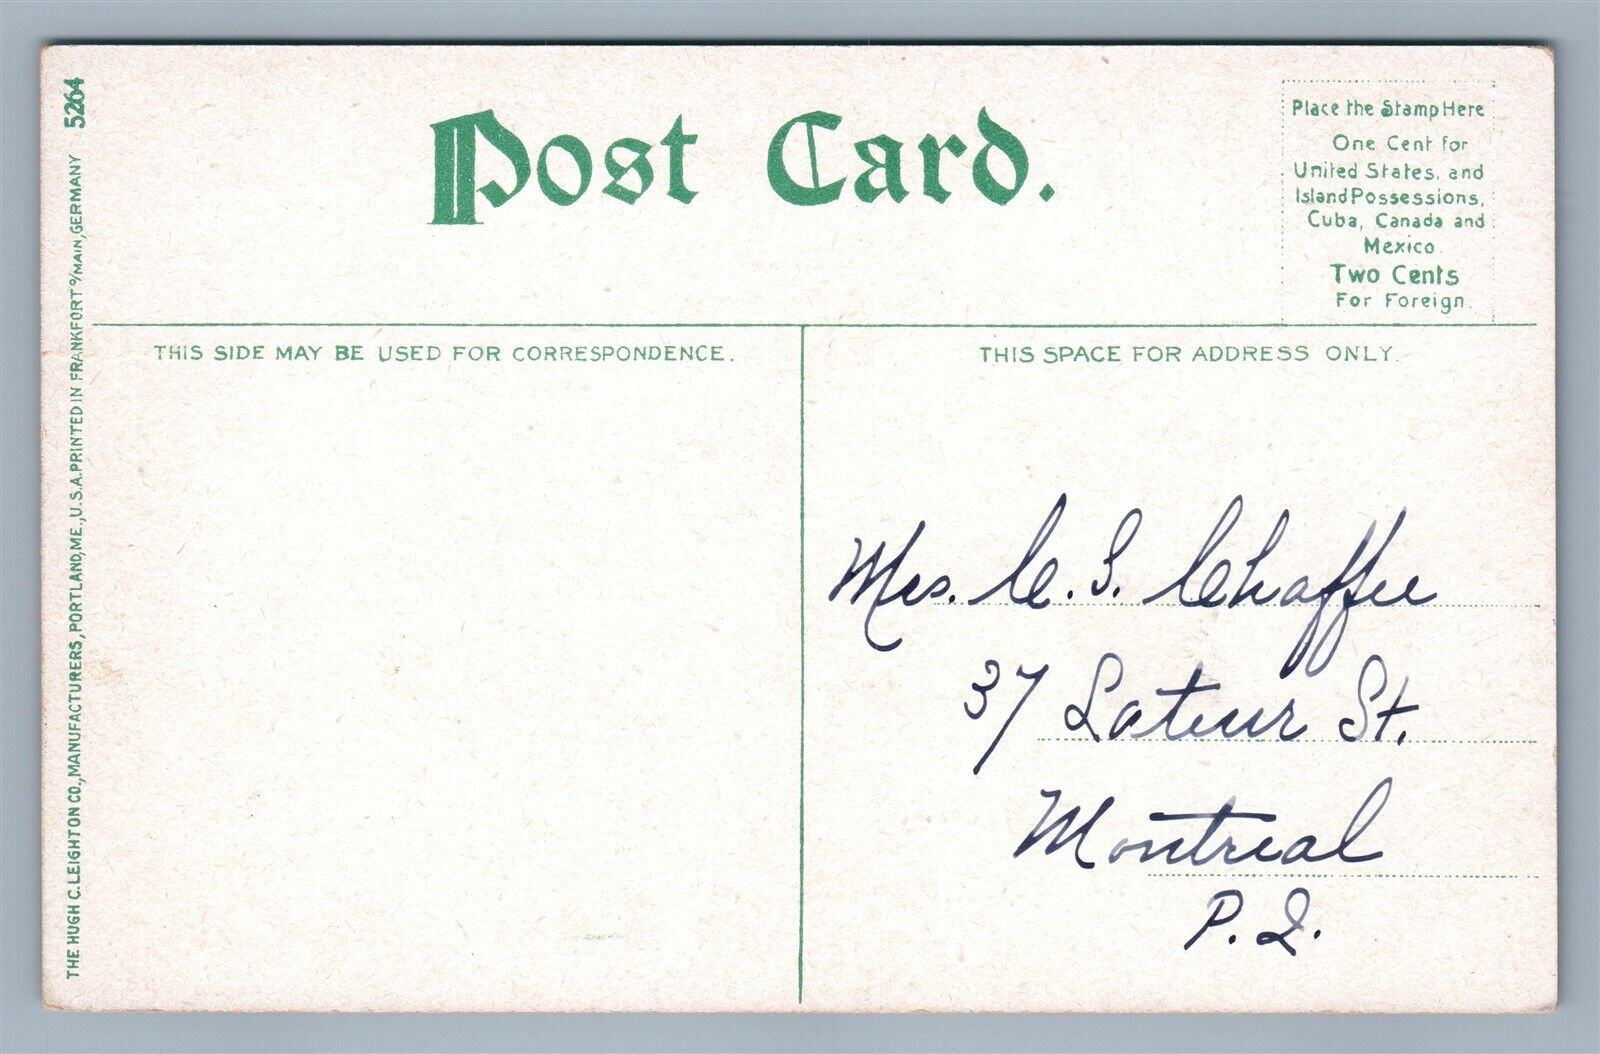 5264
Post Card.
Place the Stamp Here
One Cent for
United States, and
Island Possessions,
Cuba, Canada and
Mexico.
Two Cents
For Foreign.
THIS SIDE MAY BE USED FOR CORRESPONDENCE.
THIS SPACE FOR ADDRESS ONLY.
Mrs. C. S. Chaffee
37 Latour St.
Montreal
P. Q.
THE HUGH C. LEIGHTON CO., MANUFACTURERS, PORTLAND, ME., U.S.A. PRINTED IN FRANKFORT o/MAIN, GERMANY